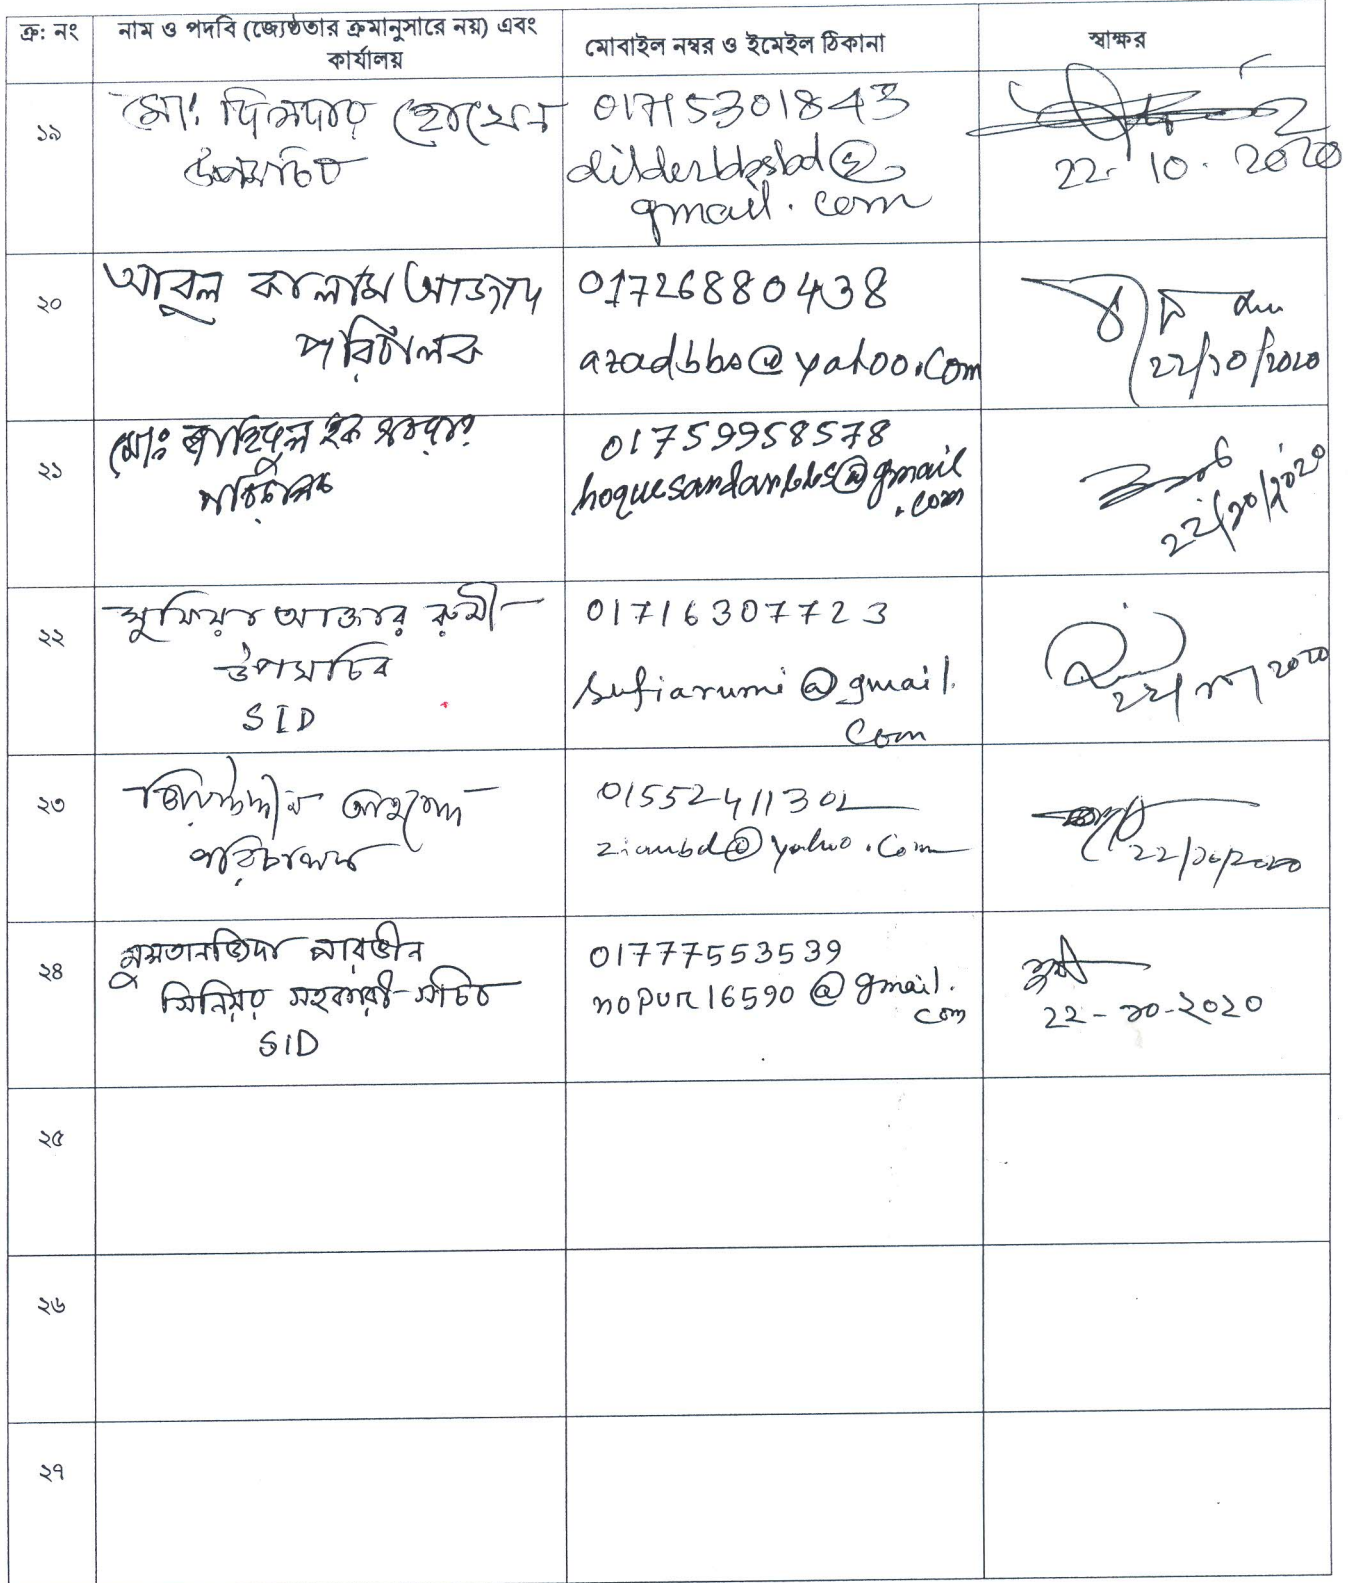 ক্র: নং
নাম ও পদবি (জ্যেষ্ঠতার ক্রমানুসারে নয়) এবং
কার্যালয়
মোবাইল নম্বর ও ইমেইল ঠিকানা
স্বাক্ষর
১৯
মো: দিলদার হোসেন
উপসচিব
01715301843
dilderbbsbd@
gmail.com
22.10.2020
২০
আবুল কালাম আজাদ
পরিচালক
01726880438
azadbbs@yahoo.com
22/10/2020
২১
মোঃ জাহিদুল হক সরদার
পরিচালক
01759958578
hoquesardarbbs@gmail
.com
22/10/2020
২২
সুফিয়া আক্তার রুমী
উপসচিব
SID
01716307723
sufiarumi@gmail.
com
22/10/2020
২৩
জিয়াউদ্দীন আহমেদ
পরিচালক
01552411302
ziaubd@yahoo.com
22/10/2020
২৪
মুমতানভিদা পারভীন
সিনিয়র সহকারী সচিব
SID
01777553539
nopur16590@gmail.
com
22-10-2020
২৫
২৬
২৭